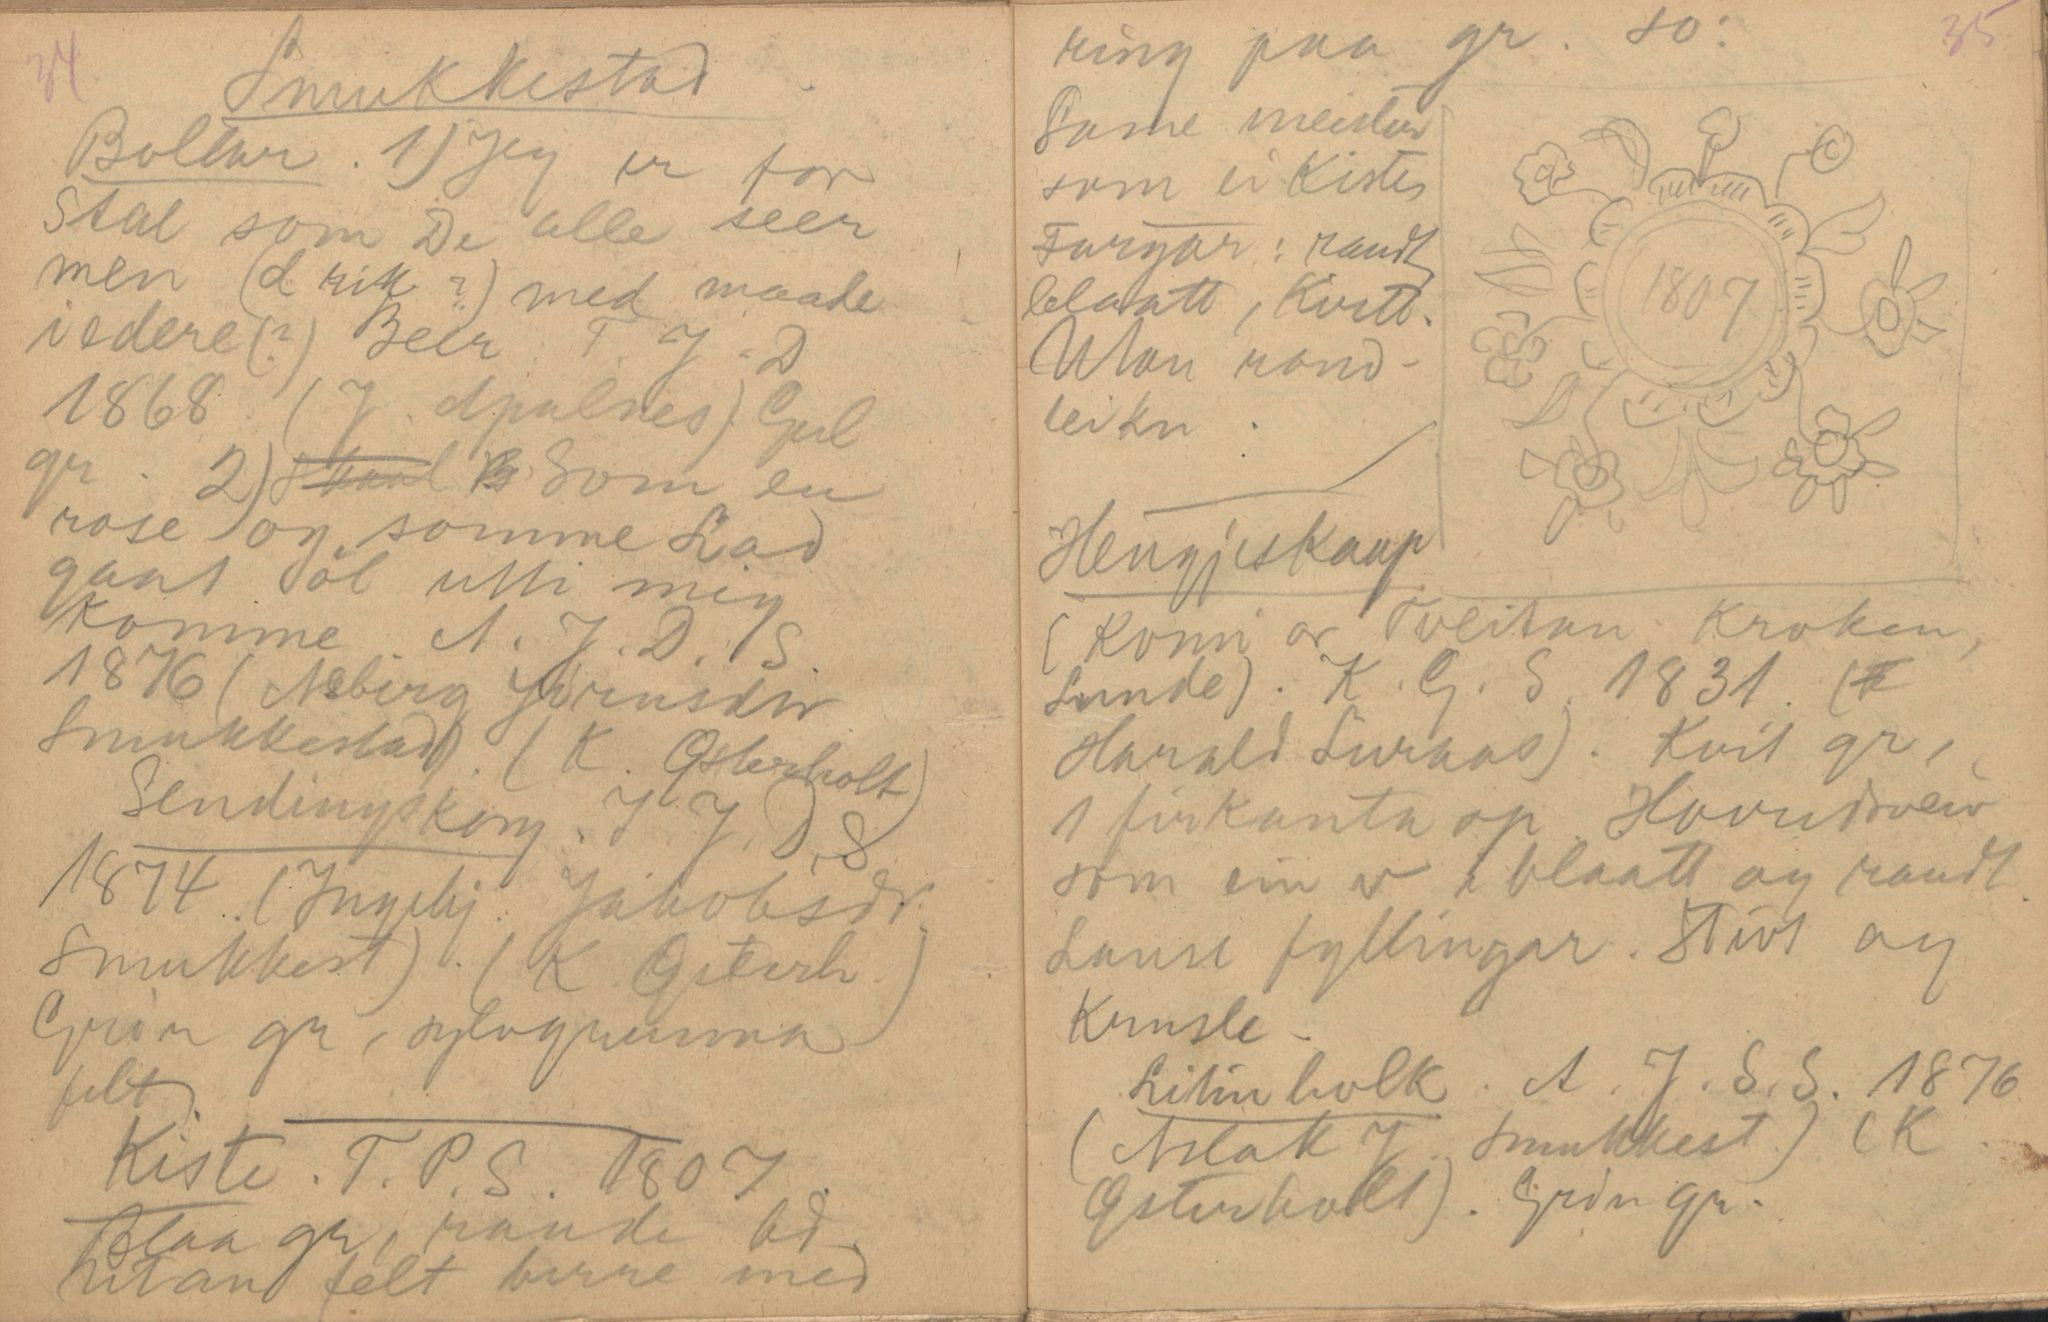 34
Smukkestad
Bollar. 1) Jeg er for
Stal som De alle seer
men (drik?) med maade
i edere(?) Beer T. J. D
1868. (J. Apalnes). Gul
gr. 2) Skaal Som en
rose og somme Lad
gaat öl utti mig
Komme A. J. D. S.
1876 (Asbirg Jörnsdtr
Smukkestad). (K. Østerholt)
Sendingskorg. I J. D. S
1874. (Ingebj. Jakobsdr.
Smukkest). (K Østerh.)
Grön gr,
felt
Kiste. T. P. S. 1807.
Blaa gr, raude bd.
Utan felt berre med
35
ring paa gr. so:
Same meister
som ei Kiste
Fargar: raudt
blaatt, Kvitt.
Utan rand-
leikn.
1807
Hengjeskaap
(Komi or Tveitan Kroken,
Lunde). K. G. S. 1831. (
Harald Luraas). Kvit gr,
1 firkanta op. Hovudsveiv
som ein v i blaatt og raudt
Lause fyllingar. Stivt og
Krusle.
Litin holk. A. J. S. S. 1876
(Aslak J. Smukkest.) (K.
Østerholt). Grön gr.